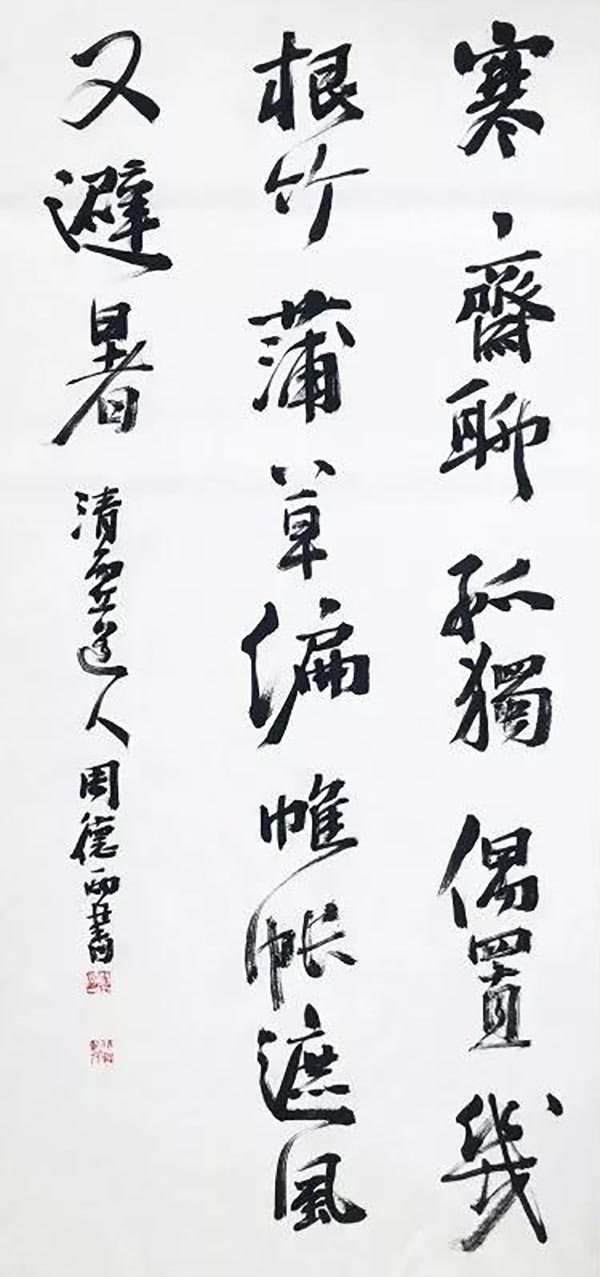 寒齋聊孤獨偶置幾
根竹蒲草編帷帳遮風
又避暑 清虛道人周德雨書